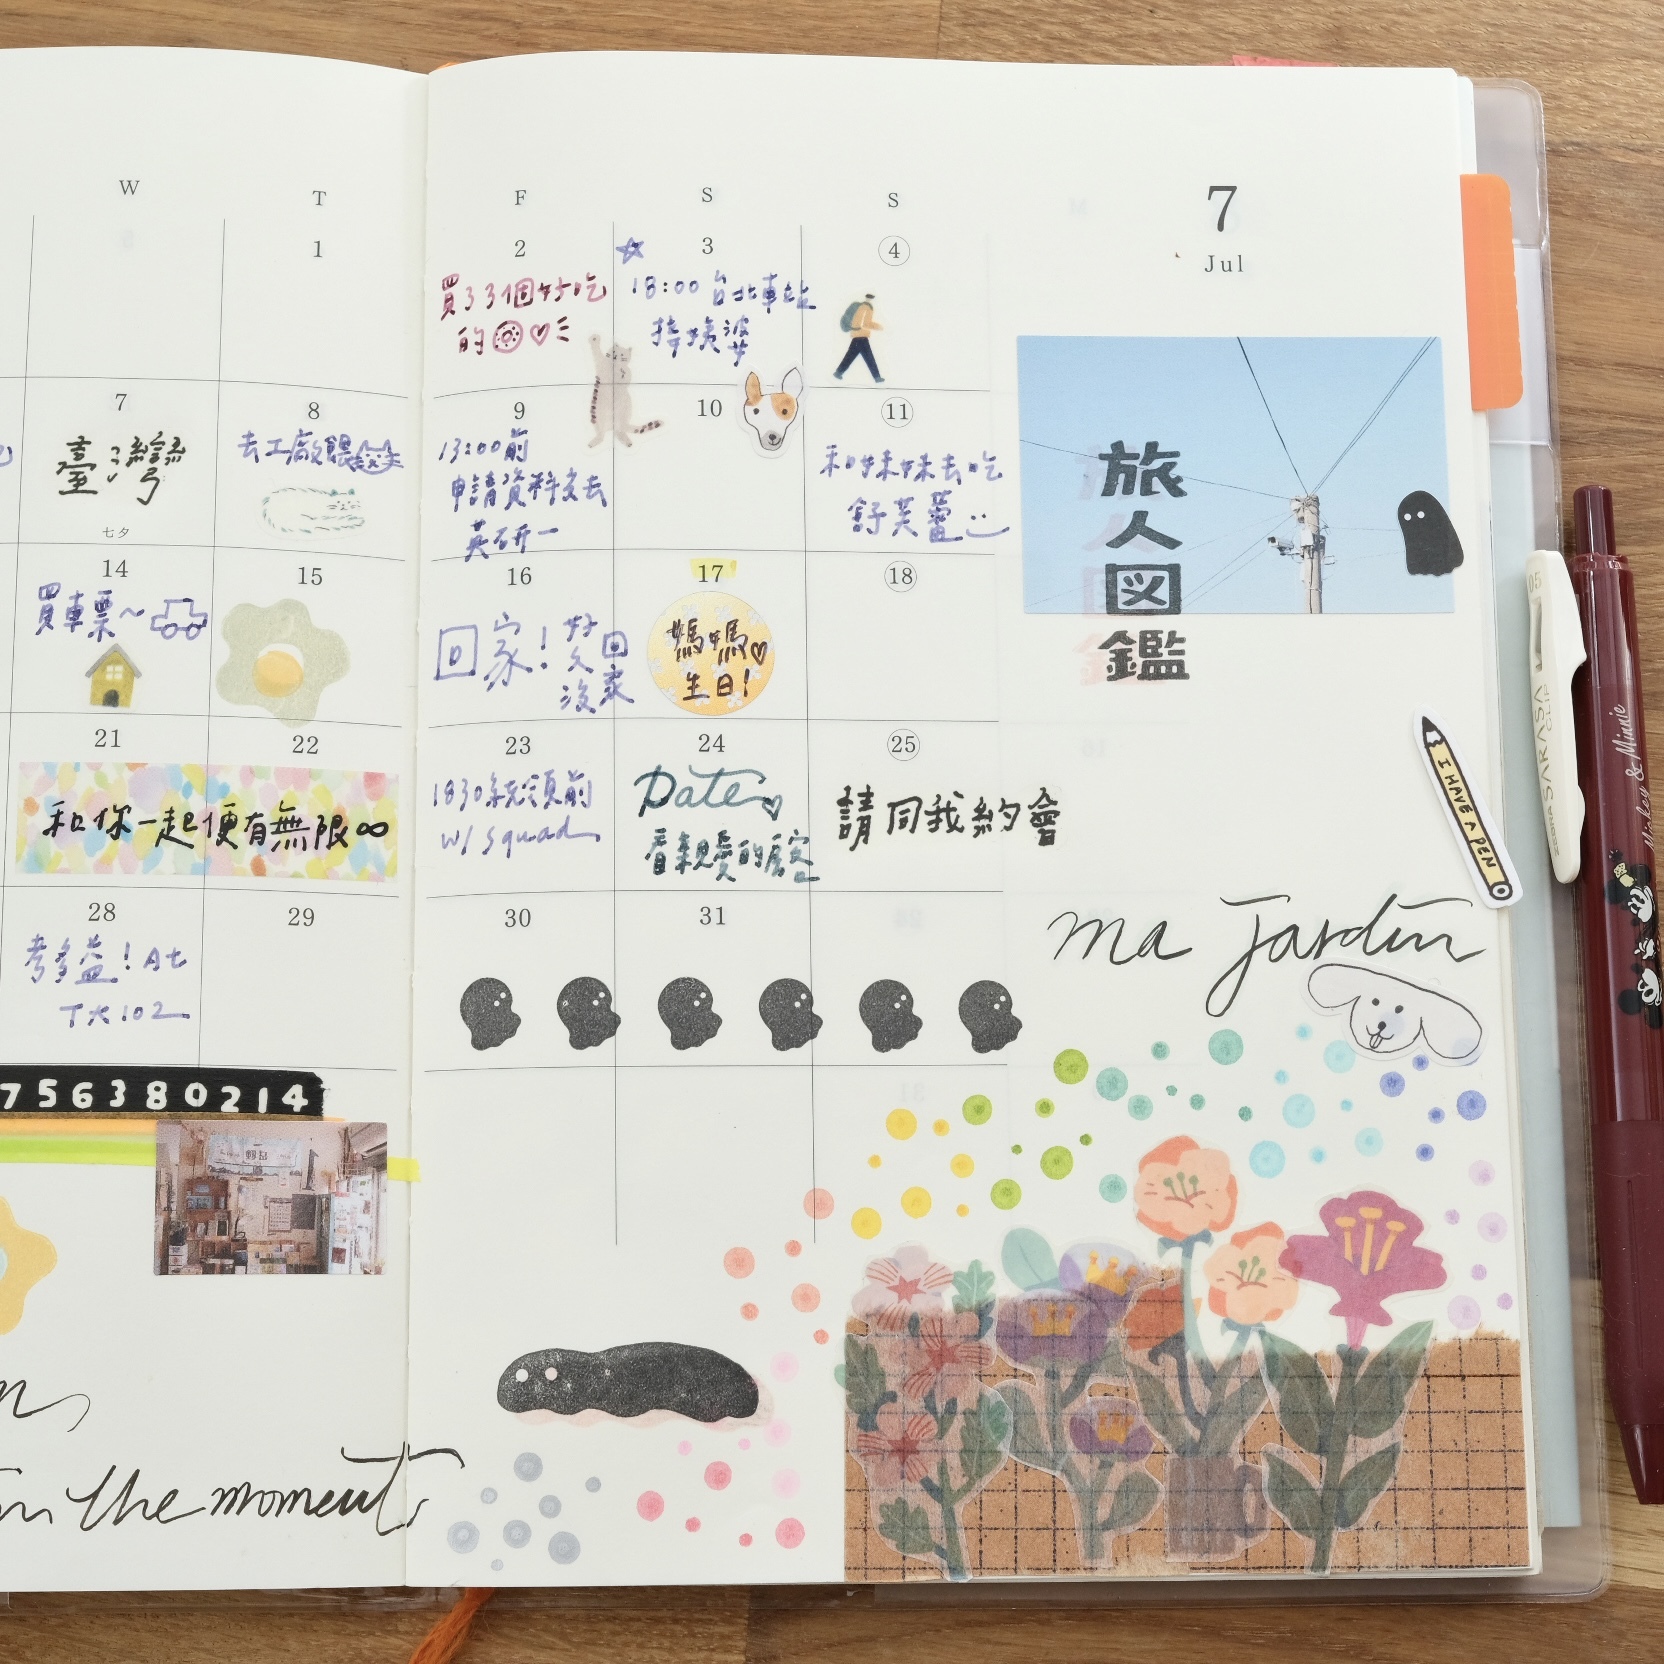 W
T
F
S
S
7
Jul
1
2
3
4
買了3個好吃
的
18:00 台北車站
接姨婆
7
8
9
10
11
臺灣
七夕
去工廠餵
13:00前
申請資料交去
英研一
和妹妹去吃
舒芙蕾
旅人図鑑
14
15
16
17
18
買車票~
回家!好久沒回家
媽媽
生日!
21
22
23
24
25
和你一起便有無限∞
1830統領前
w/ squad
Date
看親愛的房客
請同我約會
I HAVE A PEN
05
SARASA
CLIP
Mickey & Minnie
28
29
30
31
考多益! At
T大102
ma jardin
756380214
in the moment